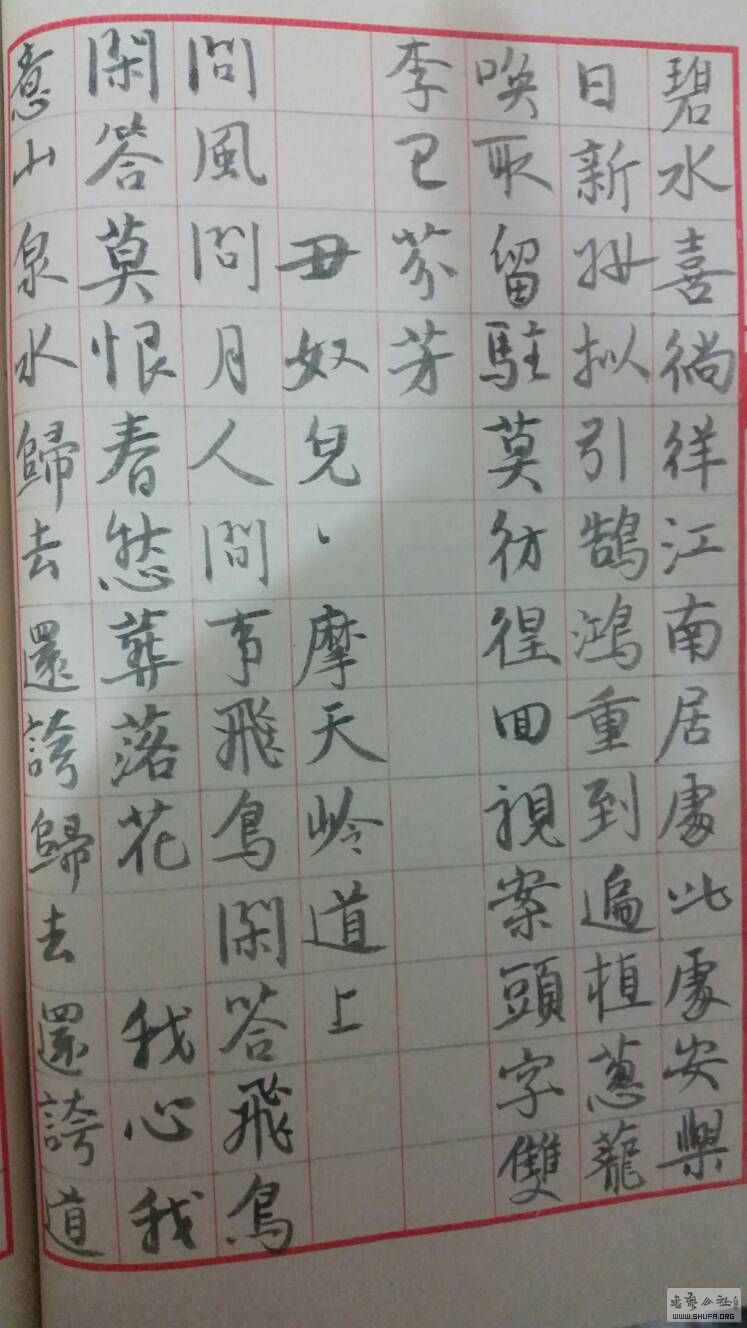 碧水喜徜徉江南居處此處安樂
日新拟引鵠鴻重到遍植蔥蘢
喚取留駐莫彷徨回視案頭字雙
李已芬芳
丑奴兒、摩天岭道上
問風問月人間事飛鳥閑答飛鳥
閑答莫恨春愁葬落花 我心我
意山泉水歸去還誇歸去還誇道
书艺公社
WWW.SHUFA.ORG